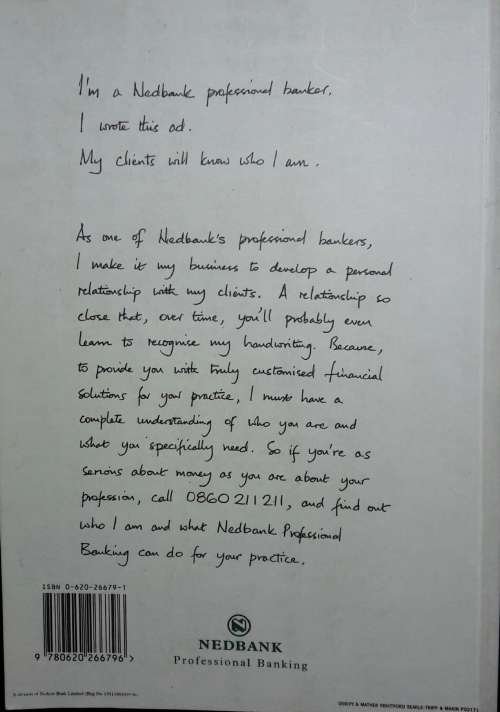 I'm a Nedbank professional banker.
I wrote this ad.
My clients will know who I am.
As one of Nedbank's professional bankers,
I make it my business to develop a personal
relationship with my clients. A relationship so
close that, over time, you'll probably even
learn to recognise my handwriting. Because,
to provide you with truly customised financial
solutions for your practice, I must have a
complete understanding of who you are and
what you specifically need. So if you're as
serious about money as you are about your
profession, call 0860 211 211, and find out
who I am and what Nedbank Professional
Banking can do for your practice.
ISBN 0-620-26679-1
9 780620 266796 >
NEDBANK
Professional Banking
A division of Nedcor Bank Limited (Reg No
OGILVY & MATHER RIGHTFORD SEARLE-TRIPP & MAKIN